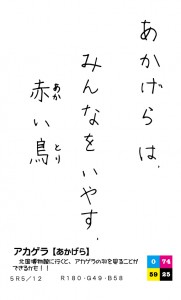 あかげらは、
みんなをいやす、
赤い鳥
あか
とり
アカゲラ【あかげら】
北国博物館に行くと、アカゲラの羽を見ることが
できるかも！！
0 74
59 25
SRS/12 R180-G49-B58